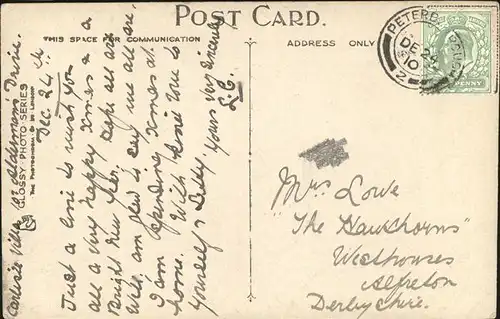 POST CARD.
THIS SPACE FOR COMMUNICATION
ADDRESS ONLY
PETERB OUGH
DE 24
10
2
PENNY
GLOSSY PHOTO SERIES
THE PHOTOCHROM Co Ld LONDON
Carlisle Villa Alderman's Drive
Dec. 24th
Just a line to wish you
all a very happy Xmas & a
Bright New Year. Hope all are
well, am glad to say we all are.
I am spending Xmas at
home. With kind love to
yourself & Yours very sincerely
L.C.
Mrs Lowe
"The Hawthorns"
Westhouses
Alfreton
Derbyshire.